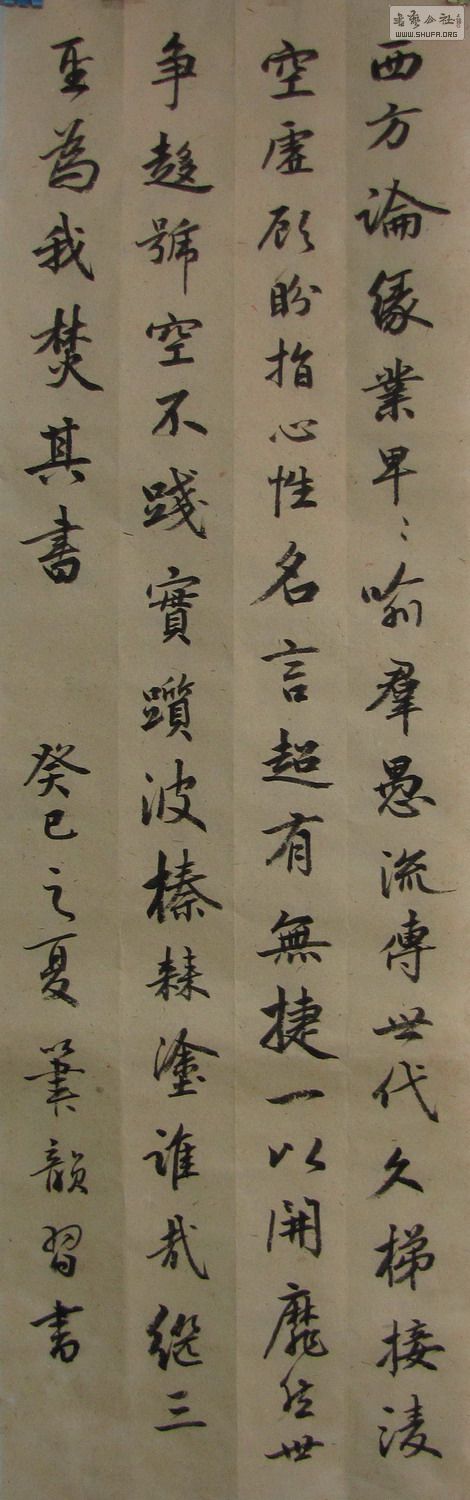 西方論緣業卑〻喻羣愚流傳世代久梯接淩
空虛顧盼指心性名言超有無捷一以開靡然世
争趍號空不踐實躓彼榛棘塗誰哉繼三
聖為我焚其書
癸巳之夏筆韻習書
書藝公社.ORG
WWW.SHUFA.ORG